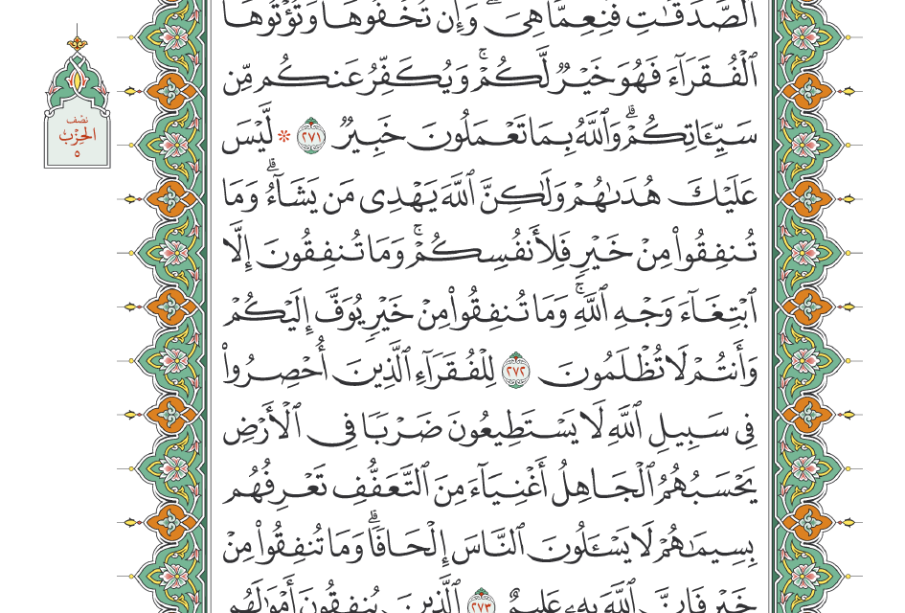 ٱلصَّدَقَٰتِ فَنِعِمَّا هِىَ ۖ وَإِن تُخْفُوهَا وَتُؤْتُوهَا
ٱلْفُقَرَآءَ فَهُوَ خَيْرٌ لَّكُمْ ۚ وَيُكَفِّرُ عَنكُم مِّن
سَيِّـَٔاتِكُمْ ۗ وَٱللَّهُ بِمَا تَعْمَلُونَ خَبِيرٌ ٢٧١ * لَّيْسَ
نصف
الحزب
٥
عَلَيْكَ هُدَىٰهُمْ وَلَٰكِنَّ ٱللَّهَ يَهْدِى مَن يَشَآءُ ۗ وَمَا
تُنفِقُوا۟ مِنْ خَيْرٍ فَلِأَنفُسِكُمْ ۚ وَمَا تُنفِقُونَ إِلَّا
ٱبْتِغَآءَ وَجْهِ ٱللَّهِ ۚ وَمَا تُنفِقُوا۟ مِنْ خَيْرٍ يُوَفَّ إِلَيْكُمْ
وَأَنتُمْ لَا تُظْلَمُونَ ٢٧٢ لِلْفُقَرَآءِ ٱلَّذِينَ أُحْصِرُوا۟
فِى سَبِيلِ ٱللَّهِ لَا يَسْتَطِيعُونَ ضَرْبًا فِى ٱلْأَرْضِ
يَحْسَبُهُمُ ٱلْجَاهِلُ أَغْنِيَآءَ مِنَ ٱلتَّعَفُّفِ تَعْرِفُهُم
بِسِيمَٰهُمْ لَا يَسْـَٔلُونَ ٱلنَّاسَ إِلْحَافًا ۗ وَمَا تُنفِقُوا۟ مِنْ
خَيْرٍ فَإِنَّ ٱللَّهَ بِهِۦ عَلِيمٌ ٢٧٣ ٱلَّذِينَ يُنفِقُونَ أَمْوَٰلَهُم